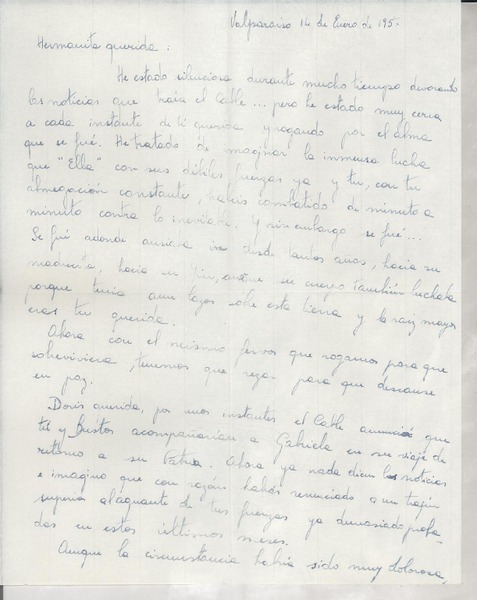 Valparaiso 14 de Enero de 195
Hermanita querida:
He estado silenciosa durante mucho tiempo devorando
las noticias que traía el Cable... pero he estado muy cerca
a cada instante de ti querida y rogando por el alma
que se fué. He tratado de imaginar la inmensa lucha
que "Ella" con sus débiles fuerzas ya y tu, con tu
abnegación constante, habéis combatido de minuto a
minuto contra lo inevitable. Y sin embargo se fué...
Se fué adonde ansiaba ir desde tantos años, hacia su
madrecita, hacia su Yin, aunque su cuerpo también luchaba
porque tenía aun lazos sobre esta tierra y la raíz mayor
eras tu querida.
Ahora con el mismo fervor que rogamos para que
sobreviviera, tenemos que rezar para que descanse
en paz.
Doris querida, por unos instantes el Cable anunció que
tú y Bustos acompañarían a Gabriela en su viaje de
retorno a su Patria. Ahora ya nada dicen las noticias
e imagino que con razón habás renunciado a un trajín
superior al aguante de tus fuerzas ya demasiado
das en estos últimos meses.
Aunque la circunstancia había sido muy dolorosa,